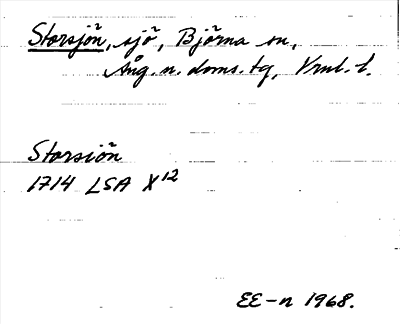 Storsjön, sjö, Björna sn,
Ång. n. doms. tg, Vrnl. l.
Storsiön
1714 LSA X12
EE-n 1968.